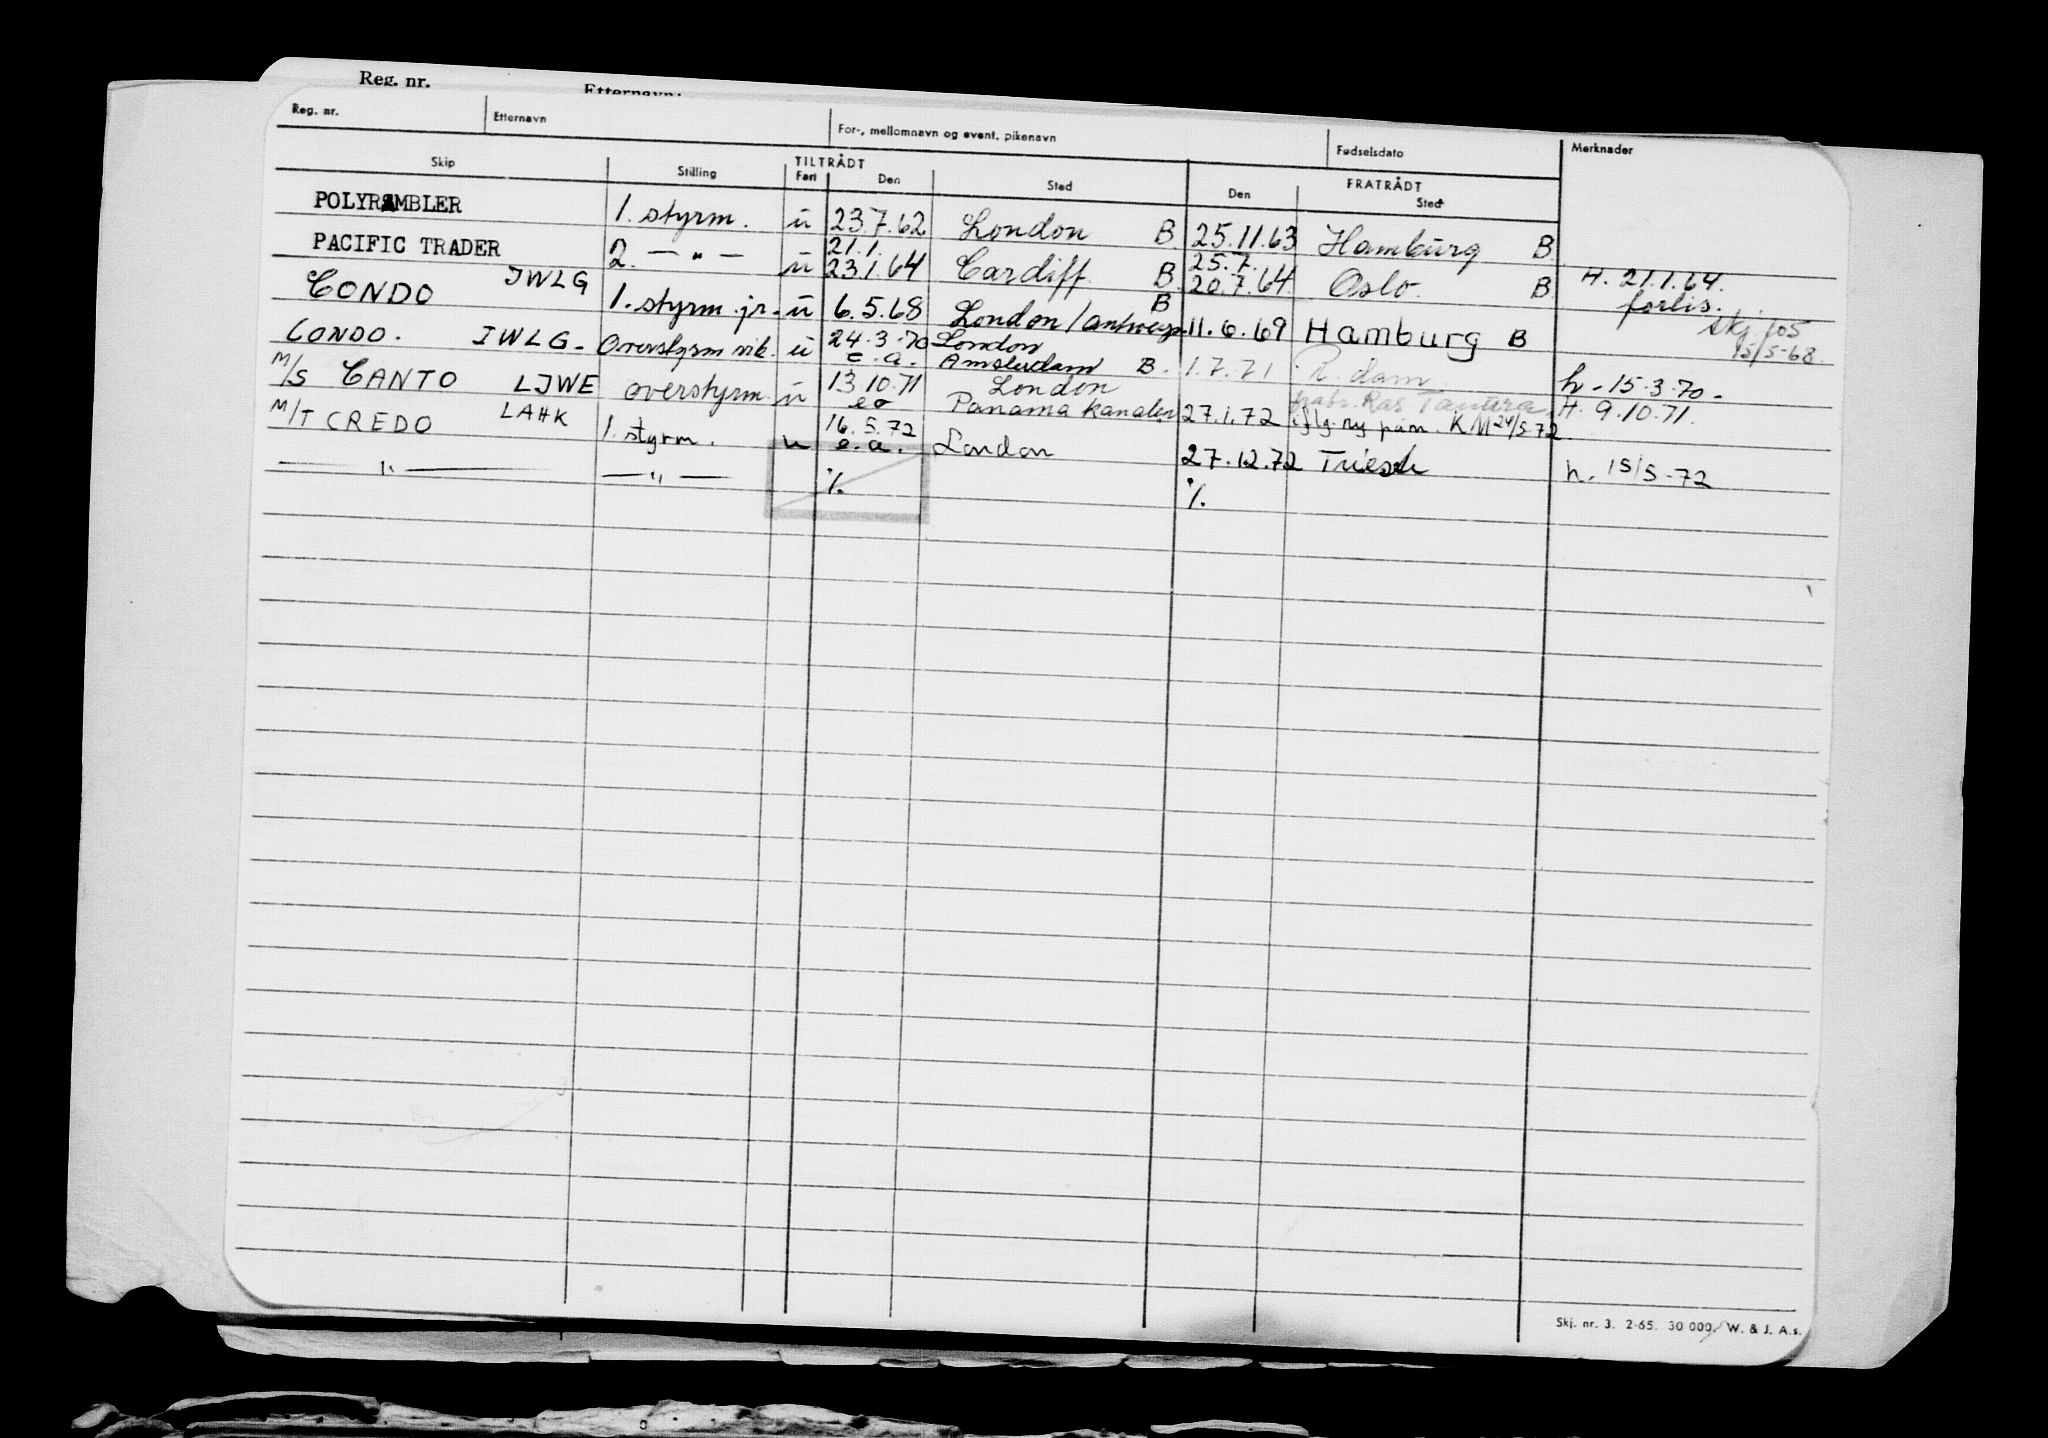 Reg. nr.
Etternavn:
Reg. nr. Etternavn For-, mellomnavn og event. pikenavn Fødselsdato Merknader
Skip Stilling TILTRÅDT FRATRÅDT
Fart Den Sted Den Sted
POLYRAMBLER 1. styrm. u 23.7.62 London B. 25.11.63 Hamburg B.
21.1. 25.7.
PACIFIC TRADER 2. — " — u 23.1.64 Cardiff B. 20.7.64. Oslo. B H. 21.1.64.
forlis.
CONDO JWLG 1. styrm. jr. u 6.5.68 London/Antwerp. B 11.6.69 Hamburg B skj. 105
15/5-68.
CONDO. JWLG. Overstyrm vik. u 24.3.70 London
e.a. Amsterdam B. 1.7.71 R.dam h. 15.3.70.
M/S CANTO LJWE overstyrm. u 13.10.71 London
eo Panama kanalen 27.1.72 Ras Tanura H. 9.10.71.
iflg. ny påm. KM 24/5.72.
M/T CREDO LAHK 1. styrm. u 16.5.72
e.a. London 27.12.72 Triest h. 15/5-72
— " — — " — %. %.
Skj. nr. 3. 2-65. 30 000. W. & J. A.s.